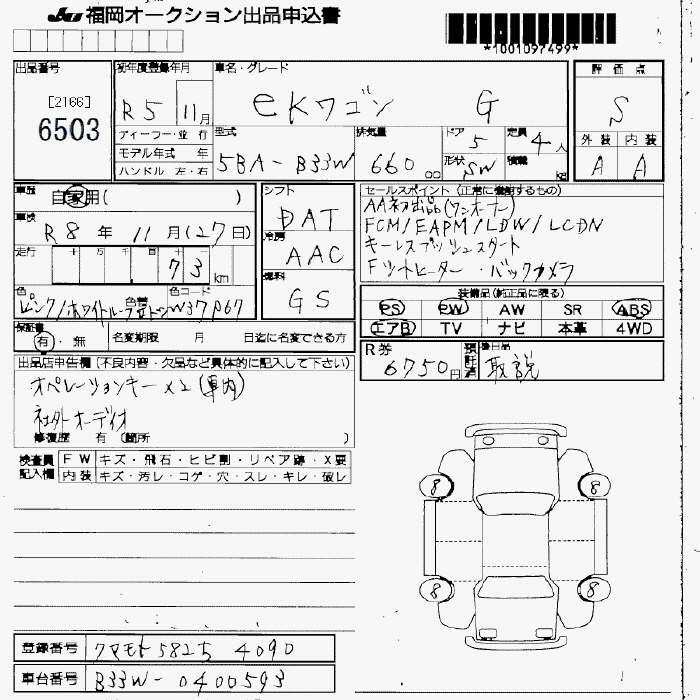 JU 福岡オークション出品申込書
*1001097499*
出品番号 [2166] 6503
初年度登録年月 R5 11月
車名・グレード eKワゴン G
評価点 S
ディーラー・並行
モデル年式 年
ハンドル 左・右
型式 5BA-B33W
排気量 660 cc
ドア 5
形状 SW
定員 4人
積載 kg
外装 内装
A A
車歴 自家用( )
車検 R8年 11月(27日)
走行 千 百 十 73 km
色 ピンク/ホワイトルーフ
色替
色コード W37P67
シフト DAT
冷房 AAC
燃料 GS
セールスポイント (正常に機能するもの)
AA初出品(ワンオーナー)
FCM/EAPM/LDW/LCDN
キーレスプッシュスタート
Fシートヒーター・バックカメラ
装備品(純正品に限る)
PS PW AW SR ABS
エアB TV ナビ 本革 4WD
保証書 有・無
名変期限 月 日迄に名変できる方
R券 6750円
預託済
後日品 取説
出品店申告欄(不良内容・欠品など具体的に記入して下さい)
オペレーションキー×2(車内)
社外オーディオ
修復歴 有 (箇所 )
検査員記入欄
FW キズ・飛石・ヒビ割・リペア跡・X要
内装 キズ・汚レ・コゲ・穴・スレ・キレ・破レ
8 8
8 8
登録番号 クマモト582ち 4090
車台番号 B33W-0400593